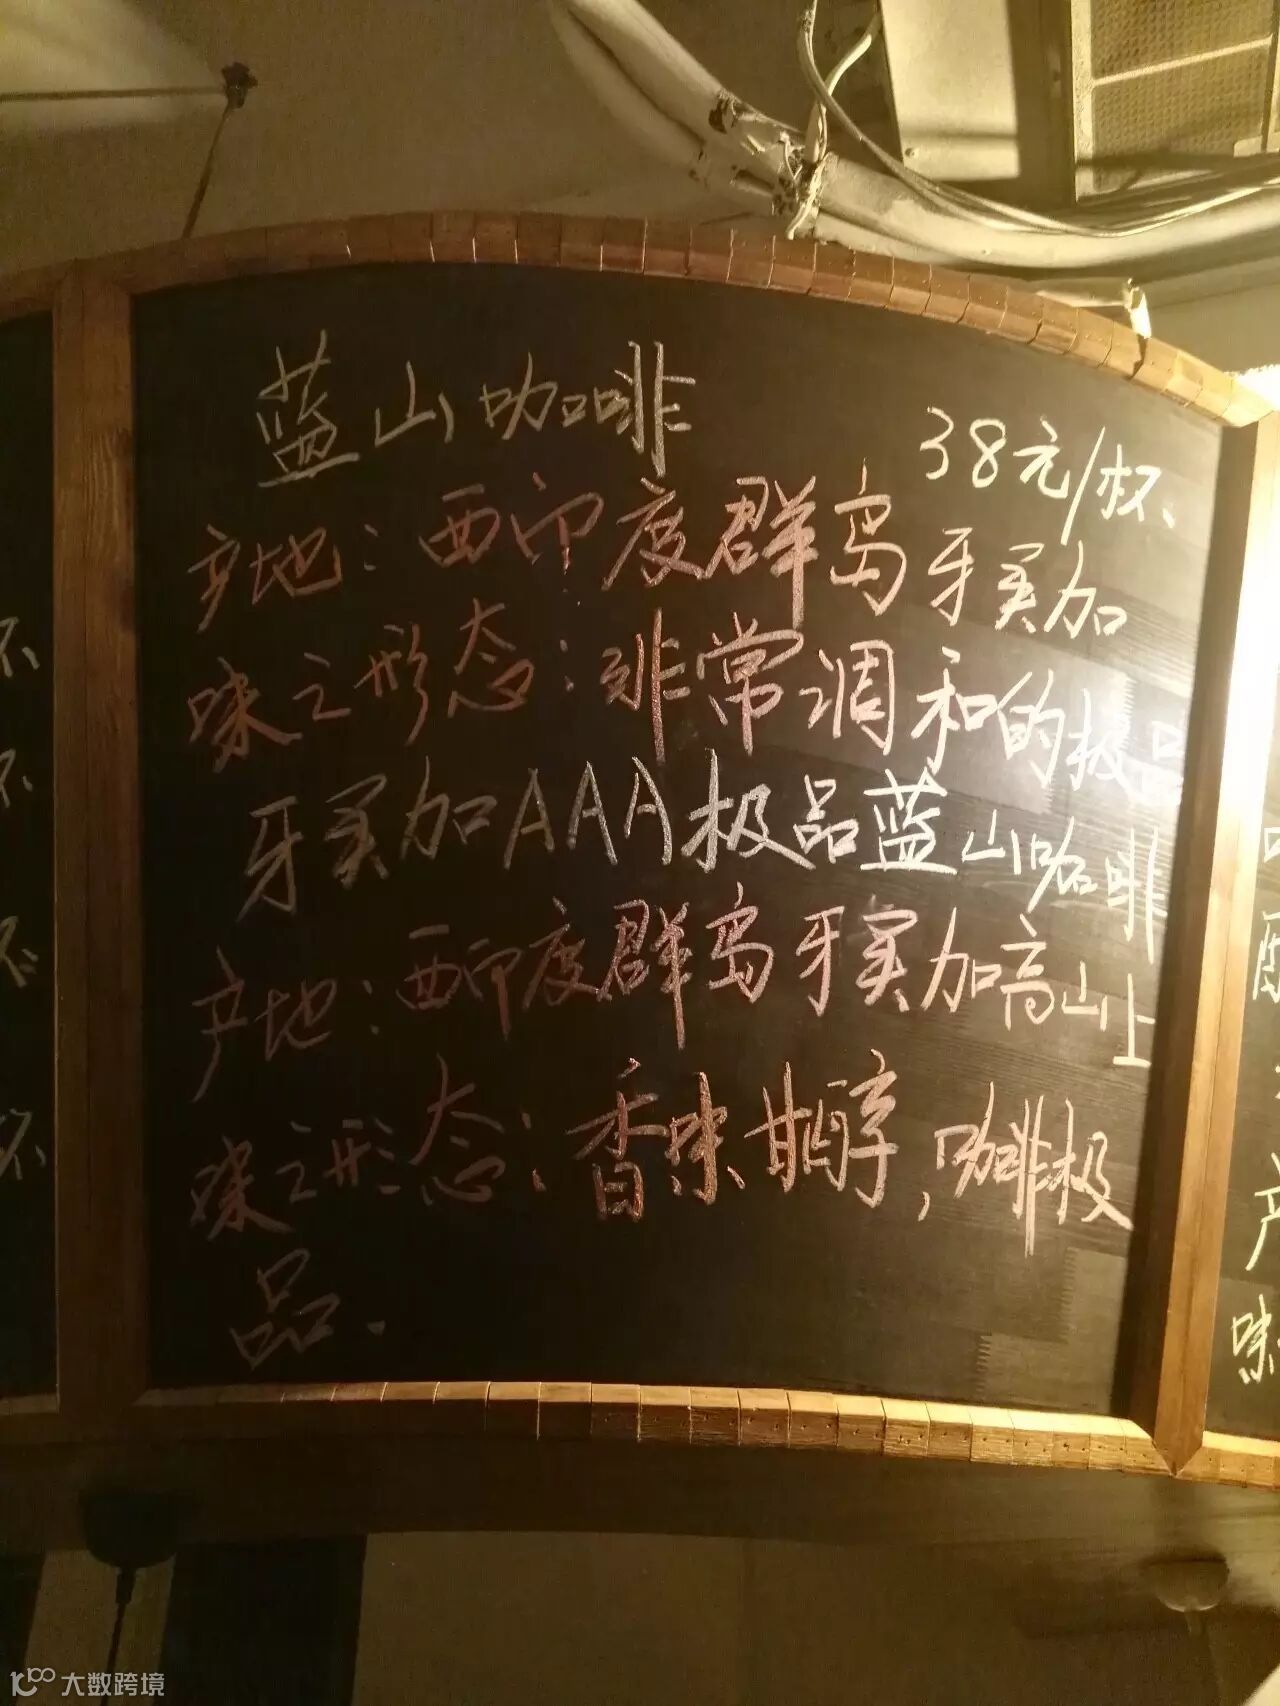 蓝山咖啡 38元/杯、
产地：西印度群岛牙买加
味之形态：非常调和的极品
牙买加AAA极品蓝山咖啡
产地：西印度群岛牙买加高山上
味之形态：香味甘醇，咖啡极
品、
产
味
大数跨境